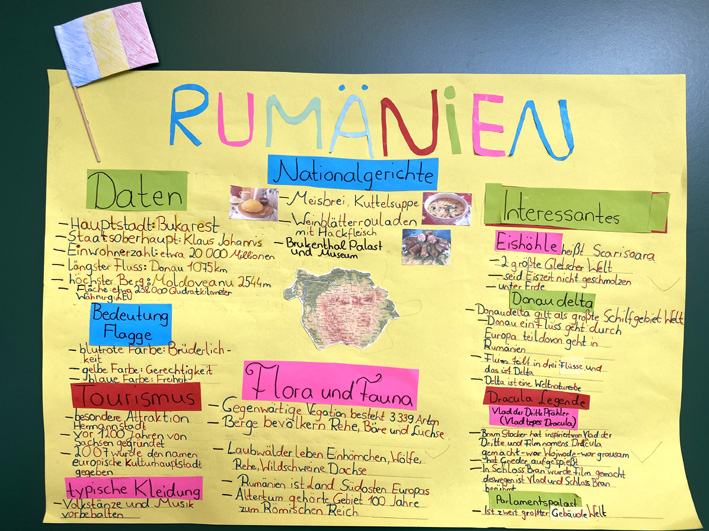 RUMÄNIEN
Daten
–Hauptstadt: Bukarest
–Staatsoberhaupt: Klaus Johannis
–Einwohnerzahl: etwa 20 000 Millionen
–Längster Fluss: Donau 1075km
–höchster Berg: Moldoveanu 2544m
–Fläche: etwa 238.000 Qudratkilometer
Währung: LEU
Bedeutung
Flagge
–blutrote Farbe: Brüderlich-
keit
–gelbe Farbe: Gerechtigkeit
–blaue Farbe: Freiheit
Tourismus
–besondere Attraktion
Hermannstadt
–vor 1200 Jahren von
Sachsen gegründet
–2007 wurde den namen
europische Kulturhauptstadt
gegeben
typische Kleidung
–Volkstänze und Musik
vorbehalten
Nationalgerichte
–Meisbrei, Kuttelsuppe
–Weinblätterrouladen
mit Hackfleisch
–Brukenthal Palast
und Museum
Flora und Fauna
–Gegenwärtige Vegation besteht 3.339 Arten
–Berge bevölkern Rehe, Bäre und Luchse
–Laubwälder leben Einhörnchen, Wölfe,
Rehe, Wildschweine, Dachse
–Rumänien ist Land Südosten Europas
–Altertum gehörte Gebiet 100 Jahre
zum Römischen Reich
Interessantes
Eishöhle heißt Scarisoara
–2 größte Gletscher Welt
–seid Eiszeit nicht geschmolzen
–unter Erde
Donaudelta
–Donaudelta gilt als größte Schilfgebiet Welt
–Donau ein Fluss geht durch
Europa teil davon geht in
Rumänien
–Fluss teilt in drei Flüsse und
das ist Delta
–Delta ist eine Weltnaturerbe
Dracula Legende
Vlad der Dritte Pfähler
(Vlad tepes Dracula)
–Bram Stocker hat inspiriert von Vlad der
Dritte und Film namens Dracula
gemacht–war Wojwode–war grausam
–hat Gegner aufgespießt
–In Schloss Bran wurde Film gemacht
deswegen ist Vlad und Schloss Bran
berühmt
Parlamentspalast
–Ist zweit größter Gebäude Welt